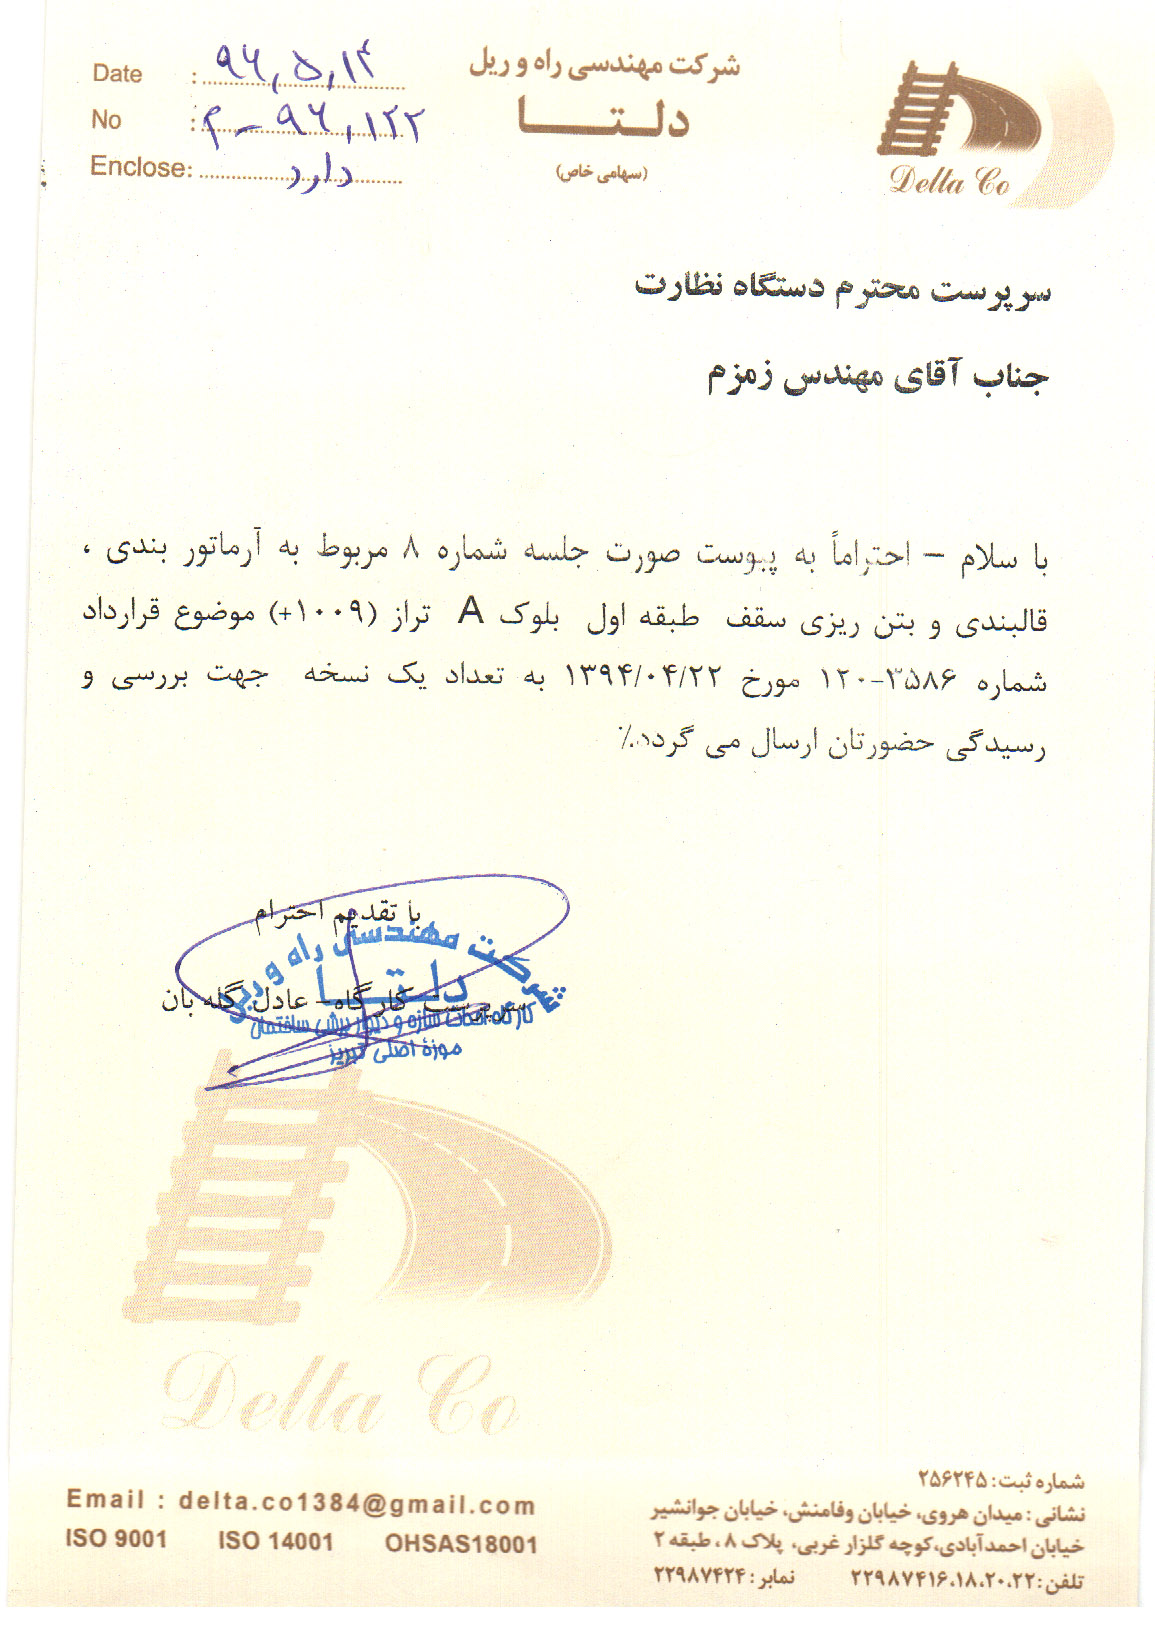 Date : ۹۶,۵,۱۴
No : م-۹۶,۱۲۲
Enclose: دارد
شرکت مهندسی راه و ریل
دلتا
(سهامی خاص)
Delta Co
سرپرست محترم دستگاه نظارت
جناب آقای مهندس زمزم
با سلام – احتراماً به پیوست صورت جلسه شماره ۸ مربوط به آرماتور بندی ،
قالبندی و بتن ریزی سقف طبقه اول بلوک A تراز (۱۰۰۹+) موضوع قرارداد
شماره ۳۵۸۶-۱۲۰ مورخ ۱۳۹۴/۰۴/۲۲ به تعداد یک نسخه جهت بررسی و
رسیدگی حضورتان ارسال می گردد.٪
با تقدیم احترام
سرپرست کارگاه- عادل گله بان
شرکت مهندسی راه و ریل
دلتا
کارگاه احداث سازه و دیوار برشی ساختمان
موزهٔ اصلی تبریز
Delta Co
Email : delta.co1384@gmail.com
ISO 9001 ISO 14001 OHSAS18001
شماره ثبت: ۲۵۶۲۴۵
نشانی: میدان هروی، خیابان وفامنش، خیابان جوانشیر
خیابان احمدآبادی،کوچه گلزار غربی، پلاک ۸ ، طبقه ۲
تلفن: ۲۲۹۸۷۴۱۶،۱۸،۲۰،۲۲ نمابر: ۲۲۹۸۷۴۲۴